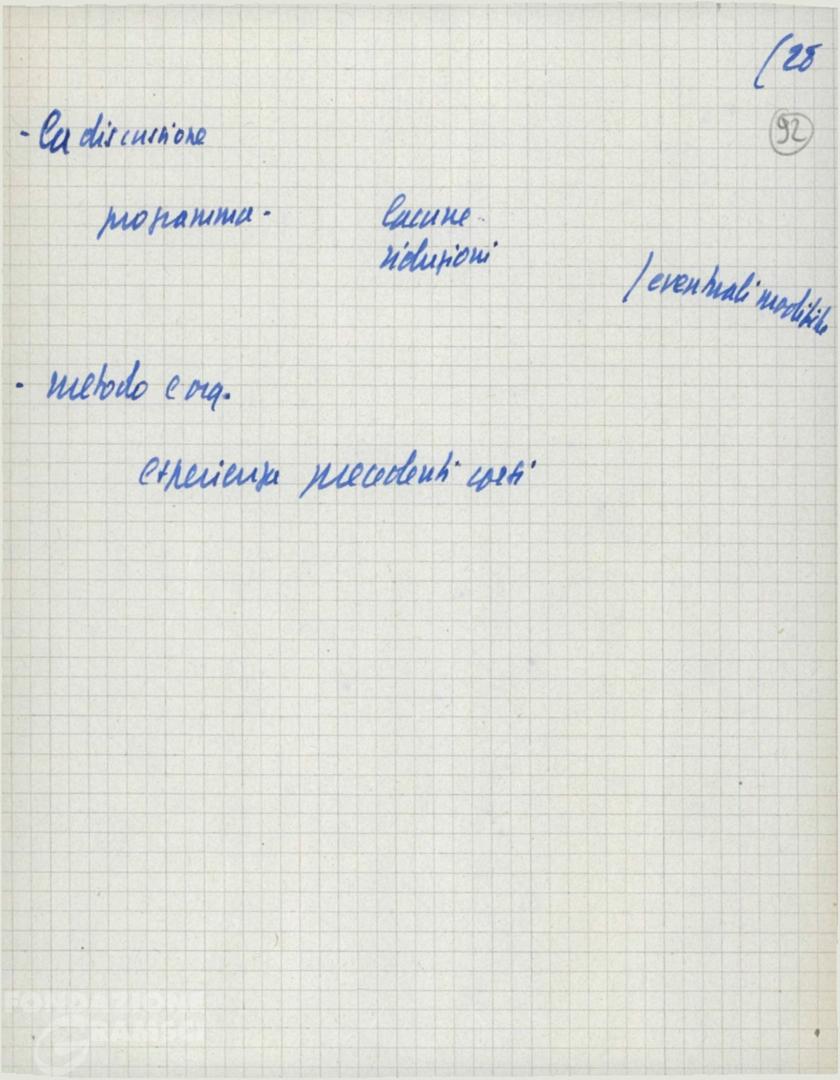 (28
92
- La discussione
programma - lacune -
riduzioni
/ eventuali modifiche
- metodo e org.
esperienza precedenti corsi
FONDAZIONE
GRAMSCI